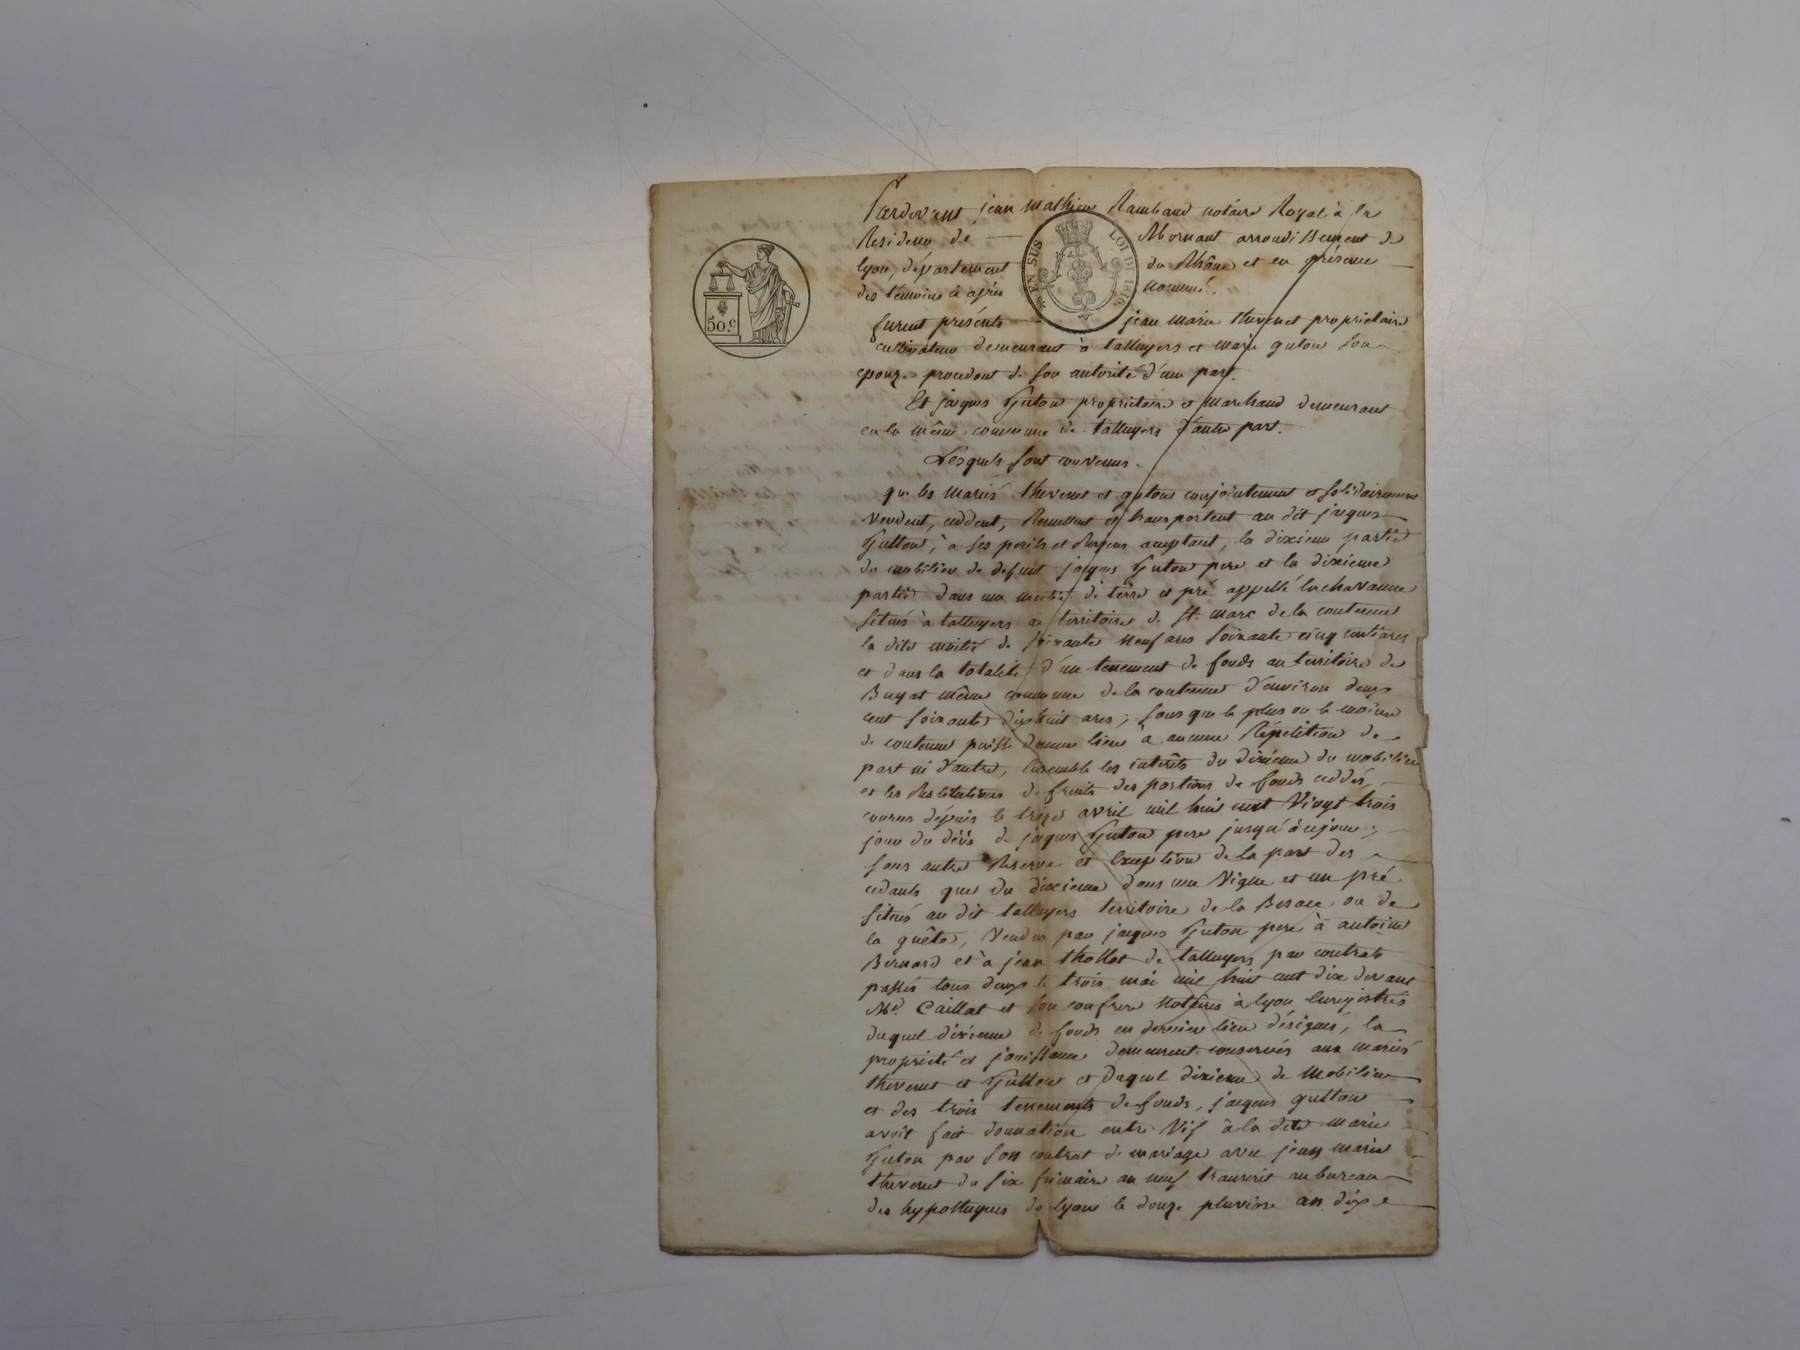 Pardevant jean Mathieu Rambaud notaire Royal à la
Residence de Mornant arrondissement de
lyon, département du Rhône et en présence
des témoins ci après nommés.
EN SUS LOI DE 1816
50.c
furent présents jean marie thevenet propriétaire
cultivateur demeurant à talluyers et marie guton son
epouze procedent de son autorité d'une part.
Et jaques Guton propriétaire et marchand demeurant
en la même commune de talluyers d'autre part.
Lesquels sont convenus.
que les mariés thevenet et gutons conjointement et solidairement
vendent, ceddent, Remettent et transportent au dit jaques
Gutton, à ses perils et Risques acceptant, la dixieme partie
du mobilier de defunt jaques Guton pere et la dixieme
partie dans une moitié de terre et pré appellé la chavanne
situés à talluyers au territoire de St. marc de la contenue
la dite moitié de soixante neuf ares soixante cinq centiares
et dans la totalité d'un tenement de fonds au territoire de
Buyat même commune de la contenue d'environ deux
cent soixante dixhuit ares; sans que le plus ou le moins
de contenue puisse donner lieu à aucune Répétition de
part ni d'autre, Ensemble les intérêts du dixieme du mobilier
et les Restitutions de fruits des portions de fonds ceddés,
courus dépuis le treize avril mil huit cent vingt trois
jour du décès de jaques Guton pere jusqu'à ce jour;
sans autre Reserve et Exception de la part des
cedants que du dixieme dans une vigne et un pré
situés au dit talluyers territoire de la ou de
la quête, vendus par jaques Guton pere à antoine
Bernard et à jean thollet de talluyers par contrats
passés tous deux le trois mai mil huit cent dix devant
Me. Caillat et son confrere notaires à lyon Enregistrés
duquel dixieme de fonds en dernier lieu désignés, la
propriété et jouissance demeurent conservés aux mariés
thevenet et Gutton et Duquel dixieme de mobilier
et des trois tenements de fonds, jacques gutton
avoit fait donnation entre vif à la dite marie
Guton par son contrat de mariage avec jean marie
thevenet du six frimaire an neuf transcrit au bureau
des hypotheques de lyon le douze pluviose an dix